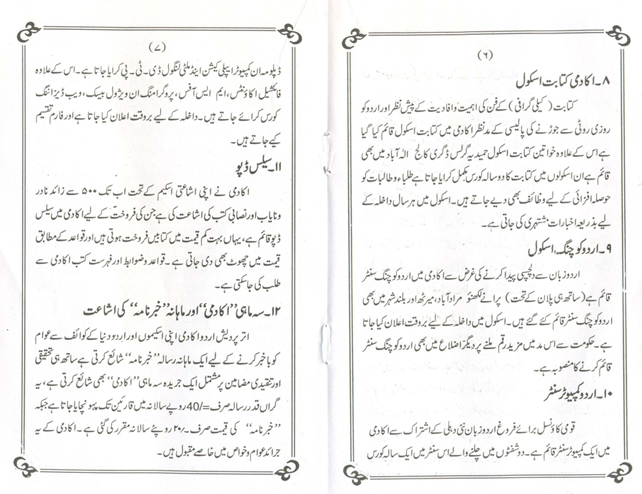 (۶)
۸۔ اکادمی کتابت اسکول
کتابت (کیلی گرافی) کے فن کی اہمیت و افادیت کے پیش نظر اور اردو کو
روزی روٹی سے جوڑنے کی پالیسی کے مدنظر اکادمی میں کتابت اسکول قائم کیا گیا
ہے اس کے علاوہ خواتین کتابت اسکول حمیدیہ گرلس ڈگری کالج الہٰ آباد میں بھی
قائم ہے ان اسکولوں میں کتابت کا دو سالہ کورس مکمل کرایا جاتا ہے طلباء و طالبات کو
حوصلہ افزائی کے لیے وظائف بھی دیے جاتے ہیں۔ اسکول میں ہر سال داخلہ کے
لیے بذریعہ اخبارات مشتہری کی جاتی ہے۔
۹۔ اردو کوچنگ اسکول
اردو زبان سے دلچسپی پیدا کرنے کی غرض سے اکادمی میں اردو کوچنگ سنٹر
قائم ہے (ساتھ ہی پلان کے تحت) پرانے لکھنؤ مراد آباد، میرٹھ اور بلند شہر میں بھی
اردو کوچنگ سنٹر قائم کئے گئے ہیں۔ اسکول میں داخلہ کے لیے بروقت اعلان کیا جاتا
ہے۔ حکومت سے اس مد میں مزید رقم ملنے پر دیگر اضلاع میں بھی اردو کوچنگ سنٹر
قائم کرنے کا منصوبہ ہے۔
۱۰۔ اردو کمپیوٹر سنٹر
قومی کاؤنسل برائے فروغ اردو زبان نئی دہلی کے اشتراک سے اکادمی
میں ایک کمپیوٹر سنٹر قائم ہے۔ دو شفٹوں میں چلنے والے اس سنٹر میں ایک سالہ کورس
(۷)
ڈپلومہ ان کمپیوٹر ایپلی کیشن اینڈ ملٹی لنگول ڈی۔ ٹی۔ پی کرایا جاتا ہے۔ اس کے علاوہ
فائنینشیل اکاؤنٹس، ایم ایس آفس، پروگرامنگ ان ویژول بیسک، ویب ڈیزائننگ
کورس کرائے جاتے ہیں۔ داخلہ کے لیے بروقت اعلان کیا جاتا ہے اور فارم تقسیم
کیے جاتے ہیں۔
۱۱۔ سیلس ڈپو
اکادمی نے اپنی اشاعتی اسکیم کے تحت اب تک ۵۰۰ سے زائد نادر
و نایاب اور نصابی کتب کی اشاعت کی ہے جن کی فروخت کے لیے اکادمی میں سیلس
ڈپو قائم ہے، یہاں بہت کم قیمت میں کتابیں فروخت ہوتی ہیں اور قواعد کے مطابق
قیمت میں چھوٹ بھی دی جاتی ہے۔ قواعد و ضوابط اور فہرست کتب اکادمی سے
طلب کی جاسکتی ہے۔
۱۲۔ سہ ماہی ’’اکادمی‘‘ اور ماہانہ ’’خبرنامہ‘‘ کی اشاعت
اتر پردیش اردو اکادمی اپنی اسکیموں اور اردو دنیا کے کوائف سے عوام
کو باخبر کرنے کے لیے ایک ماہانہ رسالہ ’’خبرنامہ‘‘ شائع کرتی ہے ساتھ ہی تحقیقی
اور تنقیدی مضامین پر مشتمل ایک جریدہ سہ ماہی ’’اکادمی‘‘ بھی شائع کرتی ہے، یہ
گراں قدر رسالہ صرف =/40 روپے سالانہ میں قارئین تک پہونچایا جاتا ہے جبکہ
’’خبرنامہ‘‘ کی قیمت صرف ۔/۲۰ روپے سالانہ مقرر کی گئی ہے۔ اکادمی کے یہ
جرائد عوام و خواص میں خاصے مقبول ہیں۔